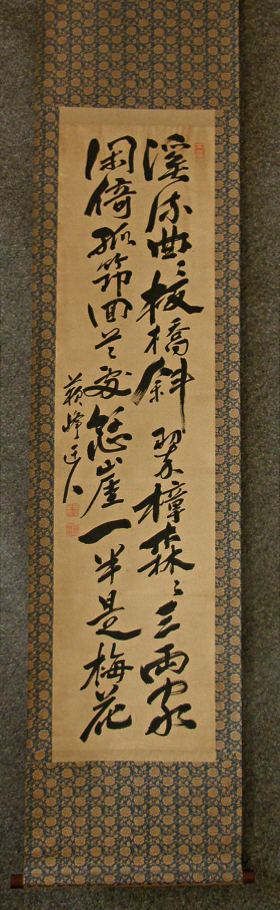 溪流曲〻板橋斜翠樟森〻三兩家
閑倚孤筇回首處懸崖一半是梅花
蘇峰迂人